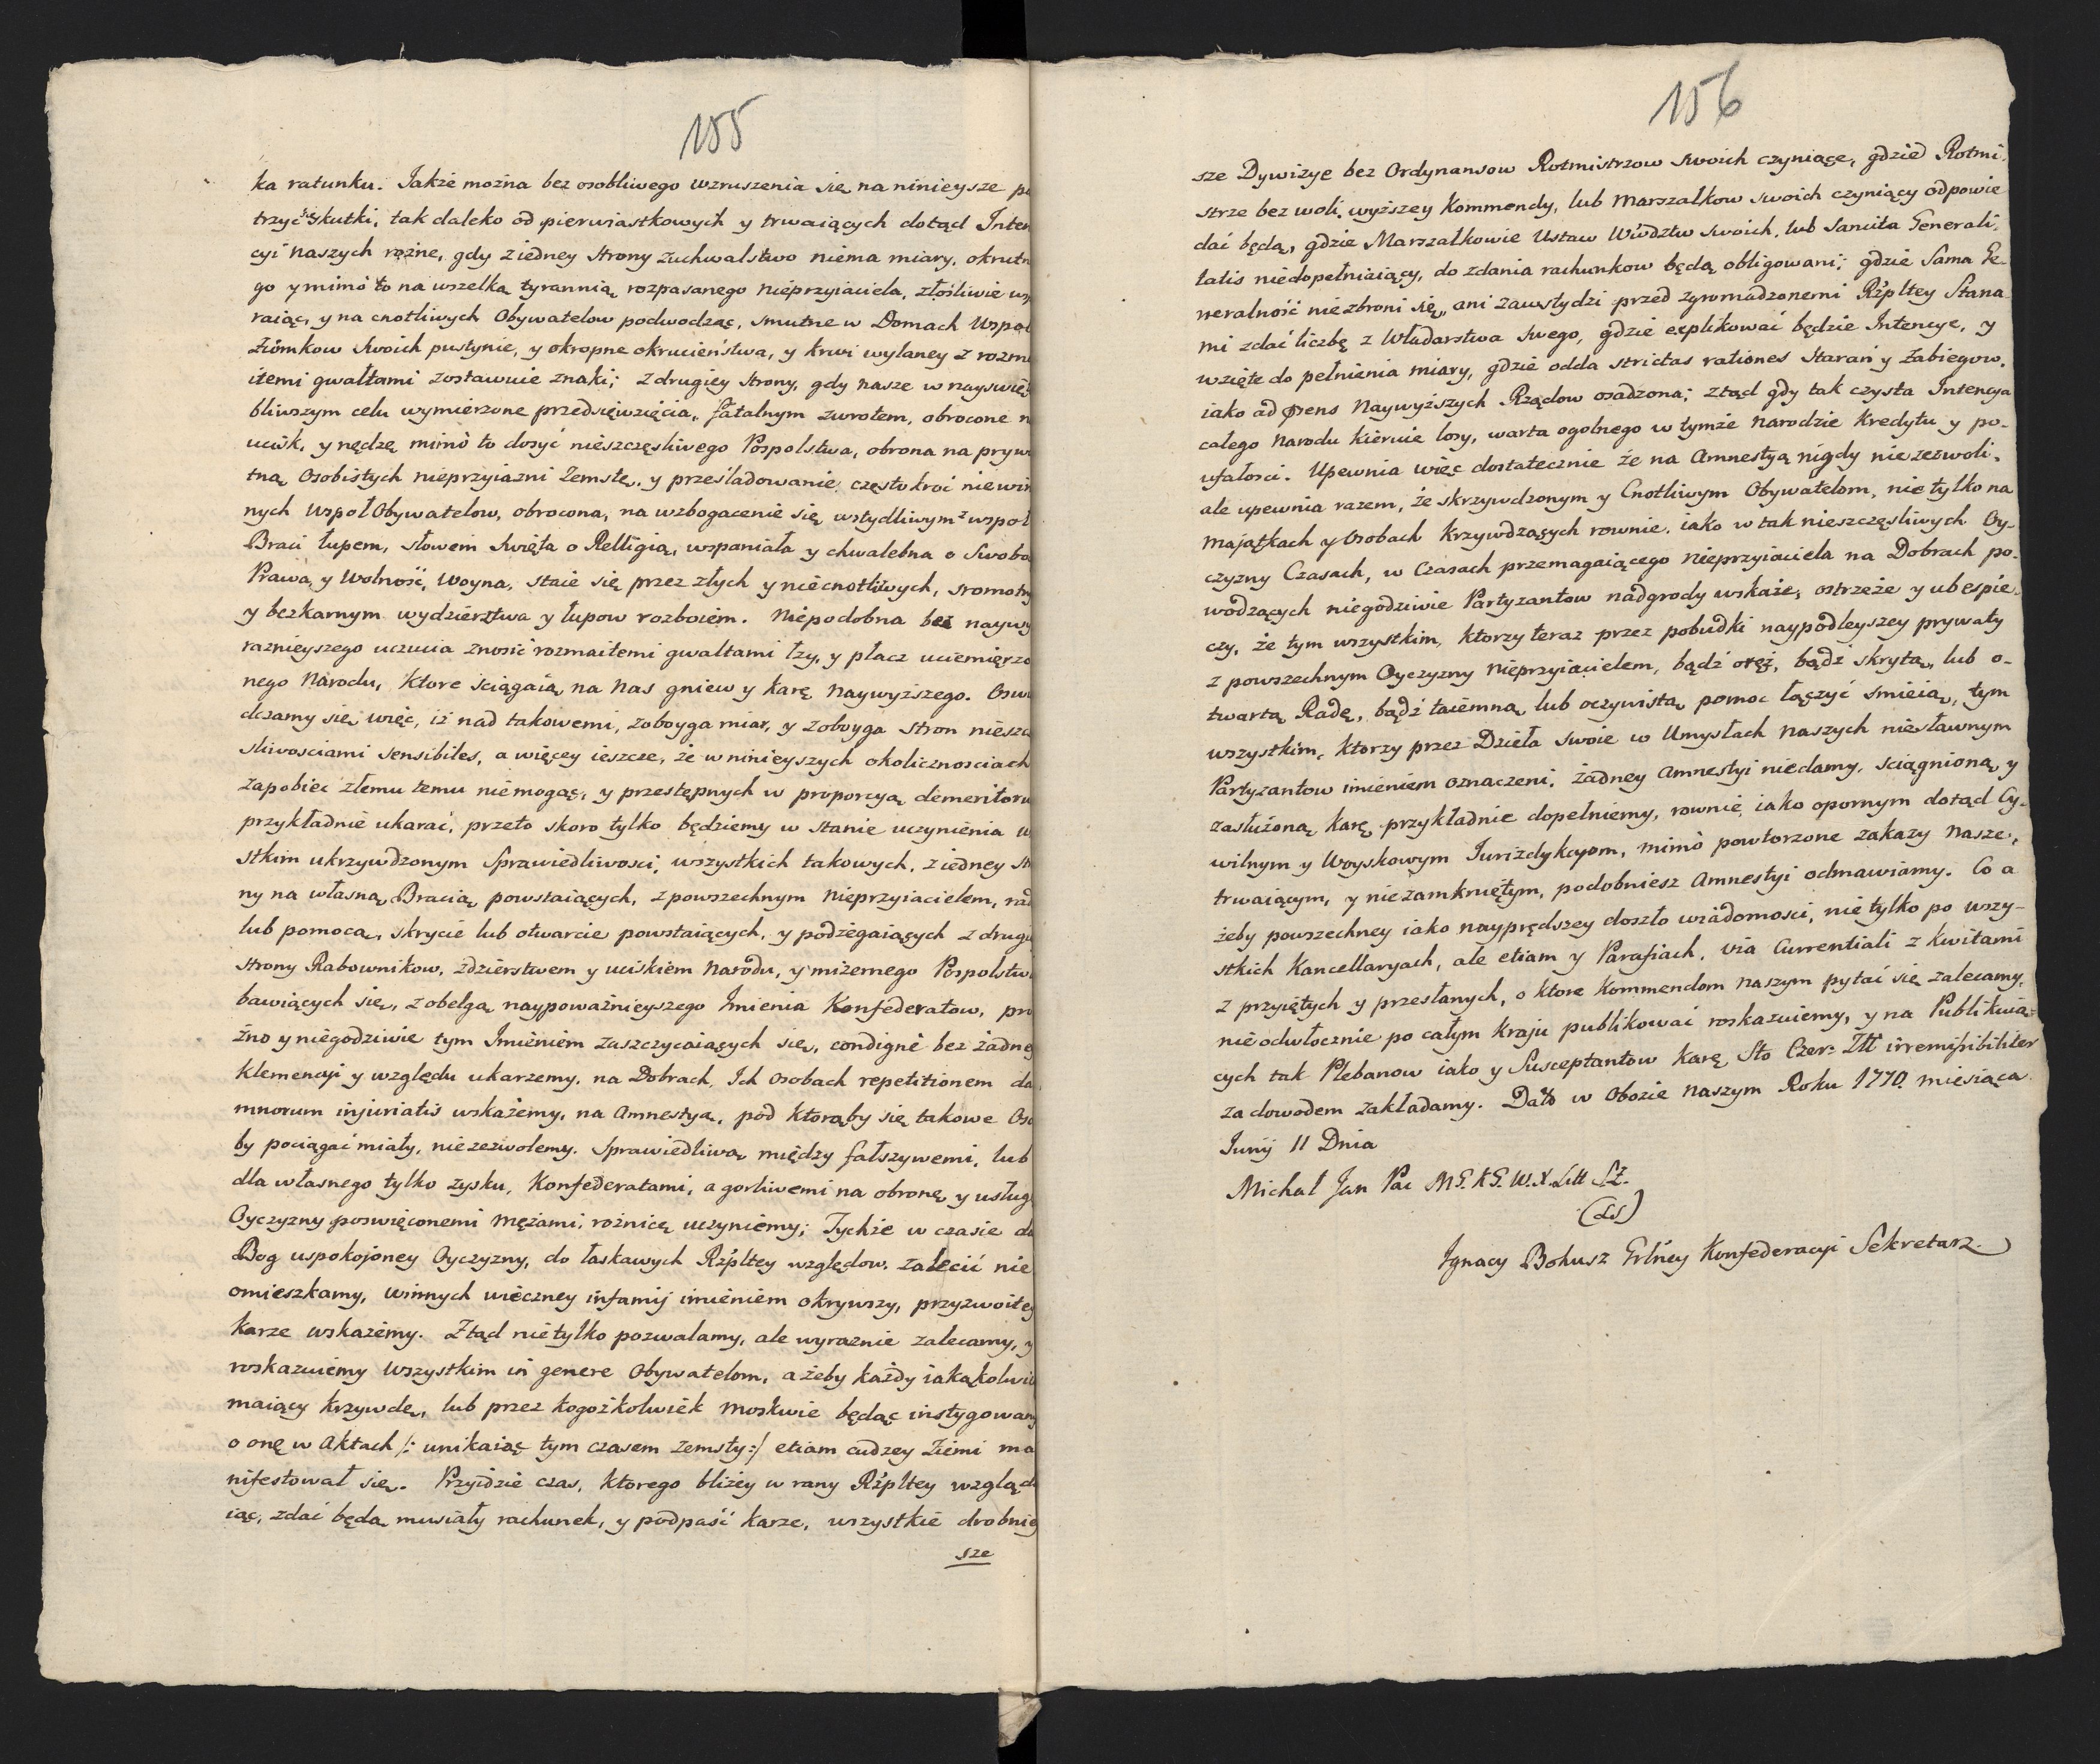 155
ka ratunku. Jakże można bez osobliwego wzruszenia się na ninieysze pa
trzyć skutki, tak daleko od pierwiastkowych y trwaiących dotąd Inten
cyi naszych rożne, gdy z iedney strony zuchwalstwo niema miary, okrutn
go y mimo to na wszelką tyrannią rozpasanego nieprzyiaciela, złośliwie wsp
raiąc, y na cnotliwych Obywatelow podwodząc, smutne w Domach Wspoł
ziomkow swoich pustynie, y okropne okrucieństwa, y krwi wylaney z rozma
itemi gwałtami zostawuie znaki; z drugiey strony, gdy nasze w nayswięt
bliwszym celu wymierzone przedsięwzięcia, fatalnym zwrotem, obrocone n
ucisk, y nędzę mimo to dosyć nieszczęsliwego Pospolstwa, obrona na prywa
tną osobistych nieprzyiazni Zemstę, y prześladowanie częstokroć niewin
nych WspołObywatelow, obrocona, na wzbogacenie się wstydliwym z wspoł
Braci łupem, słowem swięta o Relligią, wspaniała y chwalebna o Swobo
Prawa, y Wolność, Woyna, staie się przez złych y niecnotliwych, sromotny
y bezkarnym wydzierstwa y łupow rozboiem. Niepodobna bez naywy
raznieyszego uczucia znosić rozmaitemi gwałtami łzy, y płacz uciemięrzo
nego Narodu, ktore ściągaią na Nas gniew y karę Naywyższego. Oswia
dczamy się więc, iż nad takowemi, zoboyga miar, y zoboyga stron nieszcz
sliwosciami sensibiles, a więcey ieszcze, że w ninieyszych okolicznosciach
zapobiec złemu temu niemogąc, y przestępnych w proporcyą demeritoru
przykładnie ukarać, przeto skoro tylko będziemy w stanie uczynienia w
stkim ukrzywdzonym Sprawiedliwosci, wszystkich takowych, z iedney str
ny na własną Bracią powstaiących, z powszechnym Nieprzyiacielem, rad
lub pomocą, skrycie lub otwarcie powstaiących, y podzegaiących z drugi
strony Rabownikow, zdzierstwem y uciskiem Narodu, y mizernego Pospolstw
bawiących się, z obelgą naypoważnieyszego Imienia Konfederatow, pro
żno y niegodziwie tym Imieniem zaszczycaiących się, condigne bez żadney
klemencyi y względu ukarzemy, na Dobrach, Ich osobach repetitionem da
mnorum injuriatis wskażemy, na Amnestyą, pod ktorąby się takowe Oso
by pociągać miały, niezezwolemy. Sprawiedliwą między fałszywemi, lub
dla własnego tylko zysku, Konfederatami, a gorliwemi na obronę y usługę
Oyczyzny poswięconemi mężami, rożnicę uczyniemy; Tychże w czasie da
Bog uspokojoney Oyczyzny, do łaskawych Rzpltey względow, zalecić nie
omieszkamy, winnych wieczney infamij imieniem okrywszy, przyzwoitey
karze wskażemy. Ztąd nietylko pozwalamy, ale wyraznie zalecamy, y
roskazuiemy wszystkim in genere Obywatelom, ażeby każdy iakąkolwie
maiący krzywdę, lub przez kogożkolwiek Moskwie będąc instygowany
o onę w Aktach /: unikaiąc tym czasem zemsty :/ etiam cudzey Ziemi ma
nifestował się. Przyidzie czas, ktorego bliżey w rany Rzpltey wgląda
iąc, zdać będą musiały rachunek, y podpaść karze, wszystkie drobniey
sze
156
sze Dywizye bez Ordynansow Rotmistrzow swoich czyniące, gdzie Rotmi,
strze bez woli wyższey Kommendy, lub Marszałkow swoich czyniący odpowie
dać będą, gdzie Marszałkowie Ustaw Wdztw swoich, lub Sancita Generali,
tatis niedopełniaiący, do zdania rachunkow będą obligowani; gdzie Sama Ge
neralność niezbroni się, ani zawstydzi przed zgromadzonemi Rzpltey Stana
mi zdać liczbę z Władarstwa swego, gdzie explikować będzie Intencye, y
wzięte do pełnienia miary, gdzie odda strictas rationes Starań y Zabiegow,
iako ad præns Naywyższych Rządow osadzona; ztąd gdy tak czysta Intencya
całego Narodu kieruie losy, warta ogolnego w tymże Narodzie Kredytu y po-
ufałosci. Upewnia więc dostatecznie że na Amnestyą nigdy niezezwoli,
ale upewnia razem, że skrzywdzonym y Cnotliwym Obywatelom, nietylko na
Majątkach y osobach krzywdzących rownie, iako w tak nieszczęsliwych Oy-
czyzny Czasach, w Czasach przemagaiącego nieprzyiaciela na Dobrach po-
wodzących niegodziwie Partyzantow nadgrody wskaże, ostrzeże y ubespie-
czy, że tym wszystkim, ktorzy teraz przez pobudki naypodleyszey prywaty
z powszechnym Oyczyzny nieprzyiacielem, bądź oręż, bądź skrytą, lub o-
twartą Radę, bądź taiemną lub oczywistą pomoc łączyć smieią, tym
wszystkim, ktorzy przez Dzieła swoie w Umysłach naszych niesławnym
Partyzantow imieniem oznaczeni, żadney Amnestyi niedamy, sciągnioną y
zasłużoną karę przykładnie dopełniemy, rownie, iako opornym dotąd Cy-
wilnym y Woyskowym Jurizdykcyom, mimo powtorzone zakazy nasze,
trwaiącym, y niezamkniętym, podobniesz Amnestyi odmawiamy. Co a
żeby powszechney iako nayprędszey doszło wiadomosci, nietylko po wszy-
stkich Kancellaryach, ale etiam y Parafiach, via Currentiali z kwitami
z przyiętych y przesłanych, o ktore Kommendom naszym pytać się zalecamy,
nieodwłocznie po całym Kraju publikować roskazuiemy, y na Publikuią-
cych tak Plebanow iako y Susceptantow karę Sto Czer: Złł irremissibiliter
za dowodem zakładamy. Datt w Obozie naszym Roku 1770. miesiąca
Junij 11 Dnia
Michał Jan Pac M.G.K.G.W.X.Litt S.Z.
(LS)
Ignacy Bohusz Grlney Konfederacyi Sekretarz.